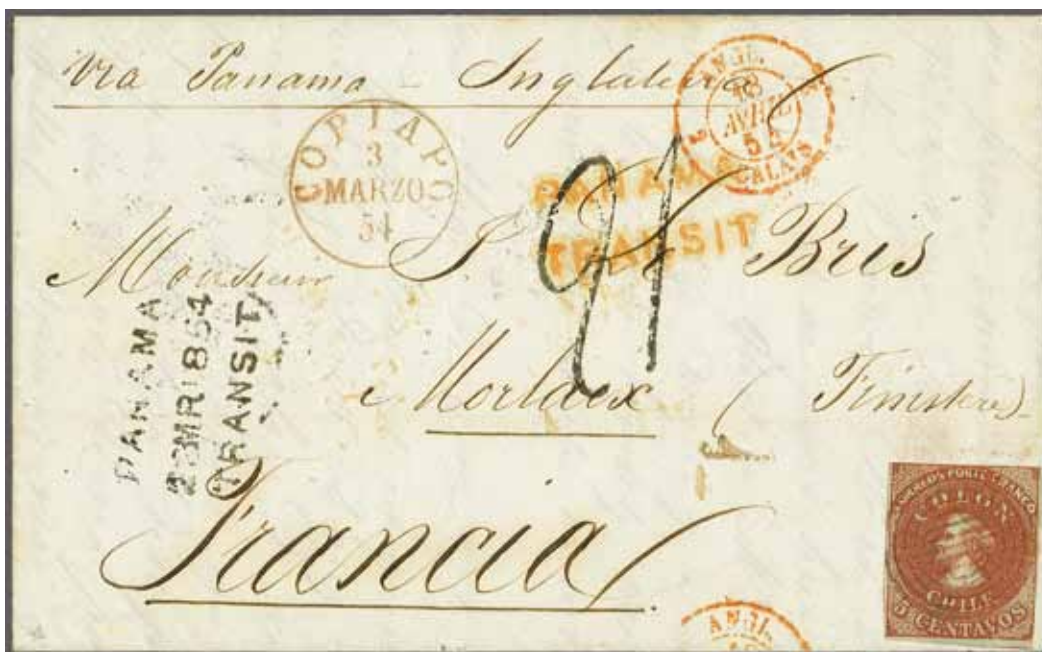 via Panama - Inglaterra
ANGL.
18
AVRIL
54
CALAIS
COPIAPO
3
MARZO
54
PANAMA
TRANSIT
21
Monsieur J. Le Bris
PANAMA
MR 1854
TRANSIT
Morlaix (Finistere)
Francia
CORREOS PORTE FRANCO
COLON
CHILE
5 CENTAVOS
ANGL.